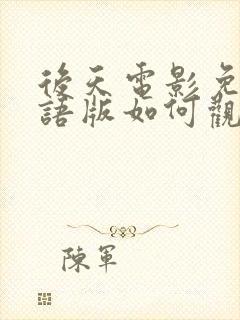 後天電影免
語版如何觀
陳軍